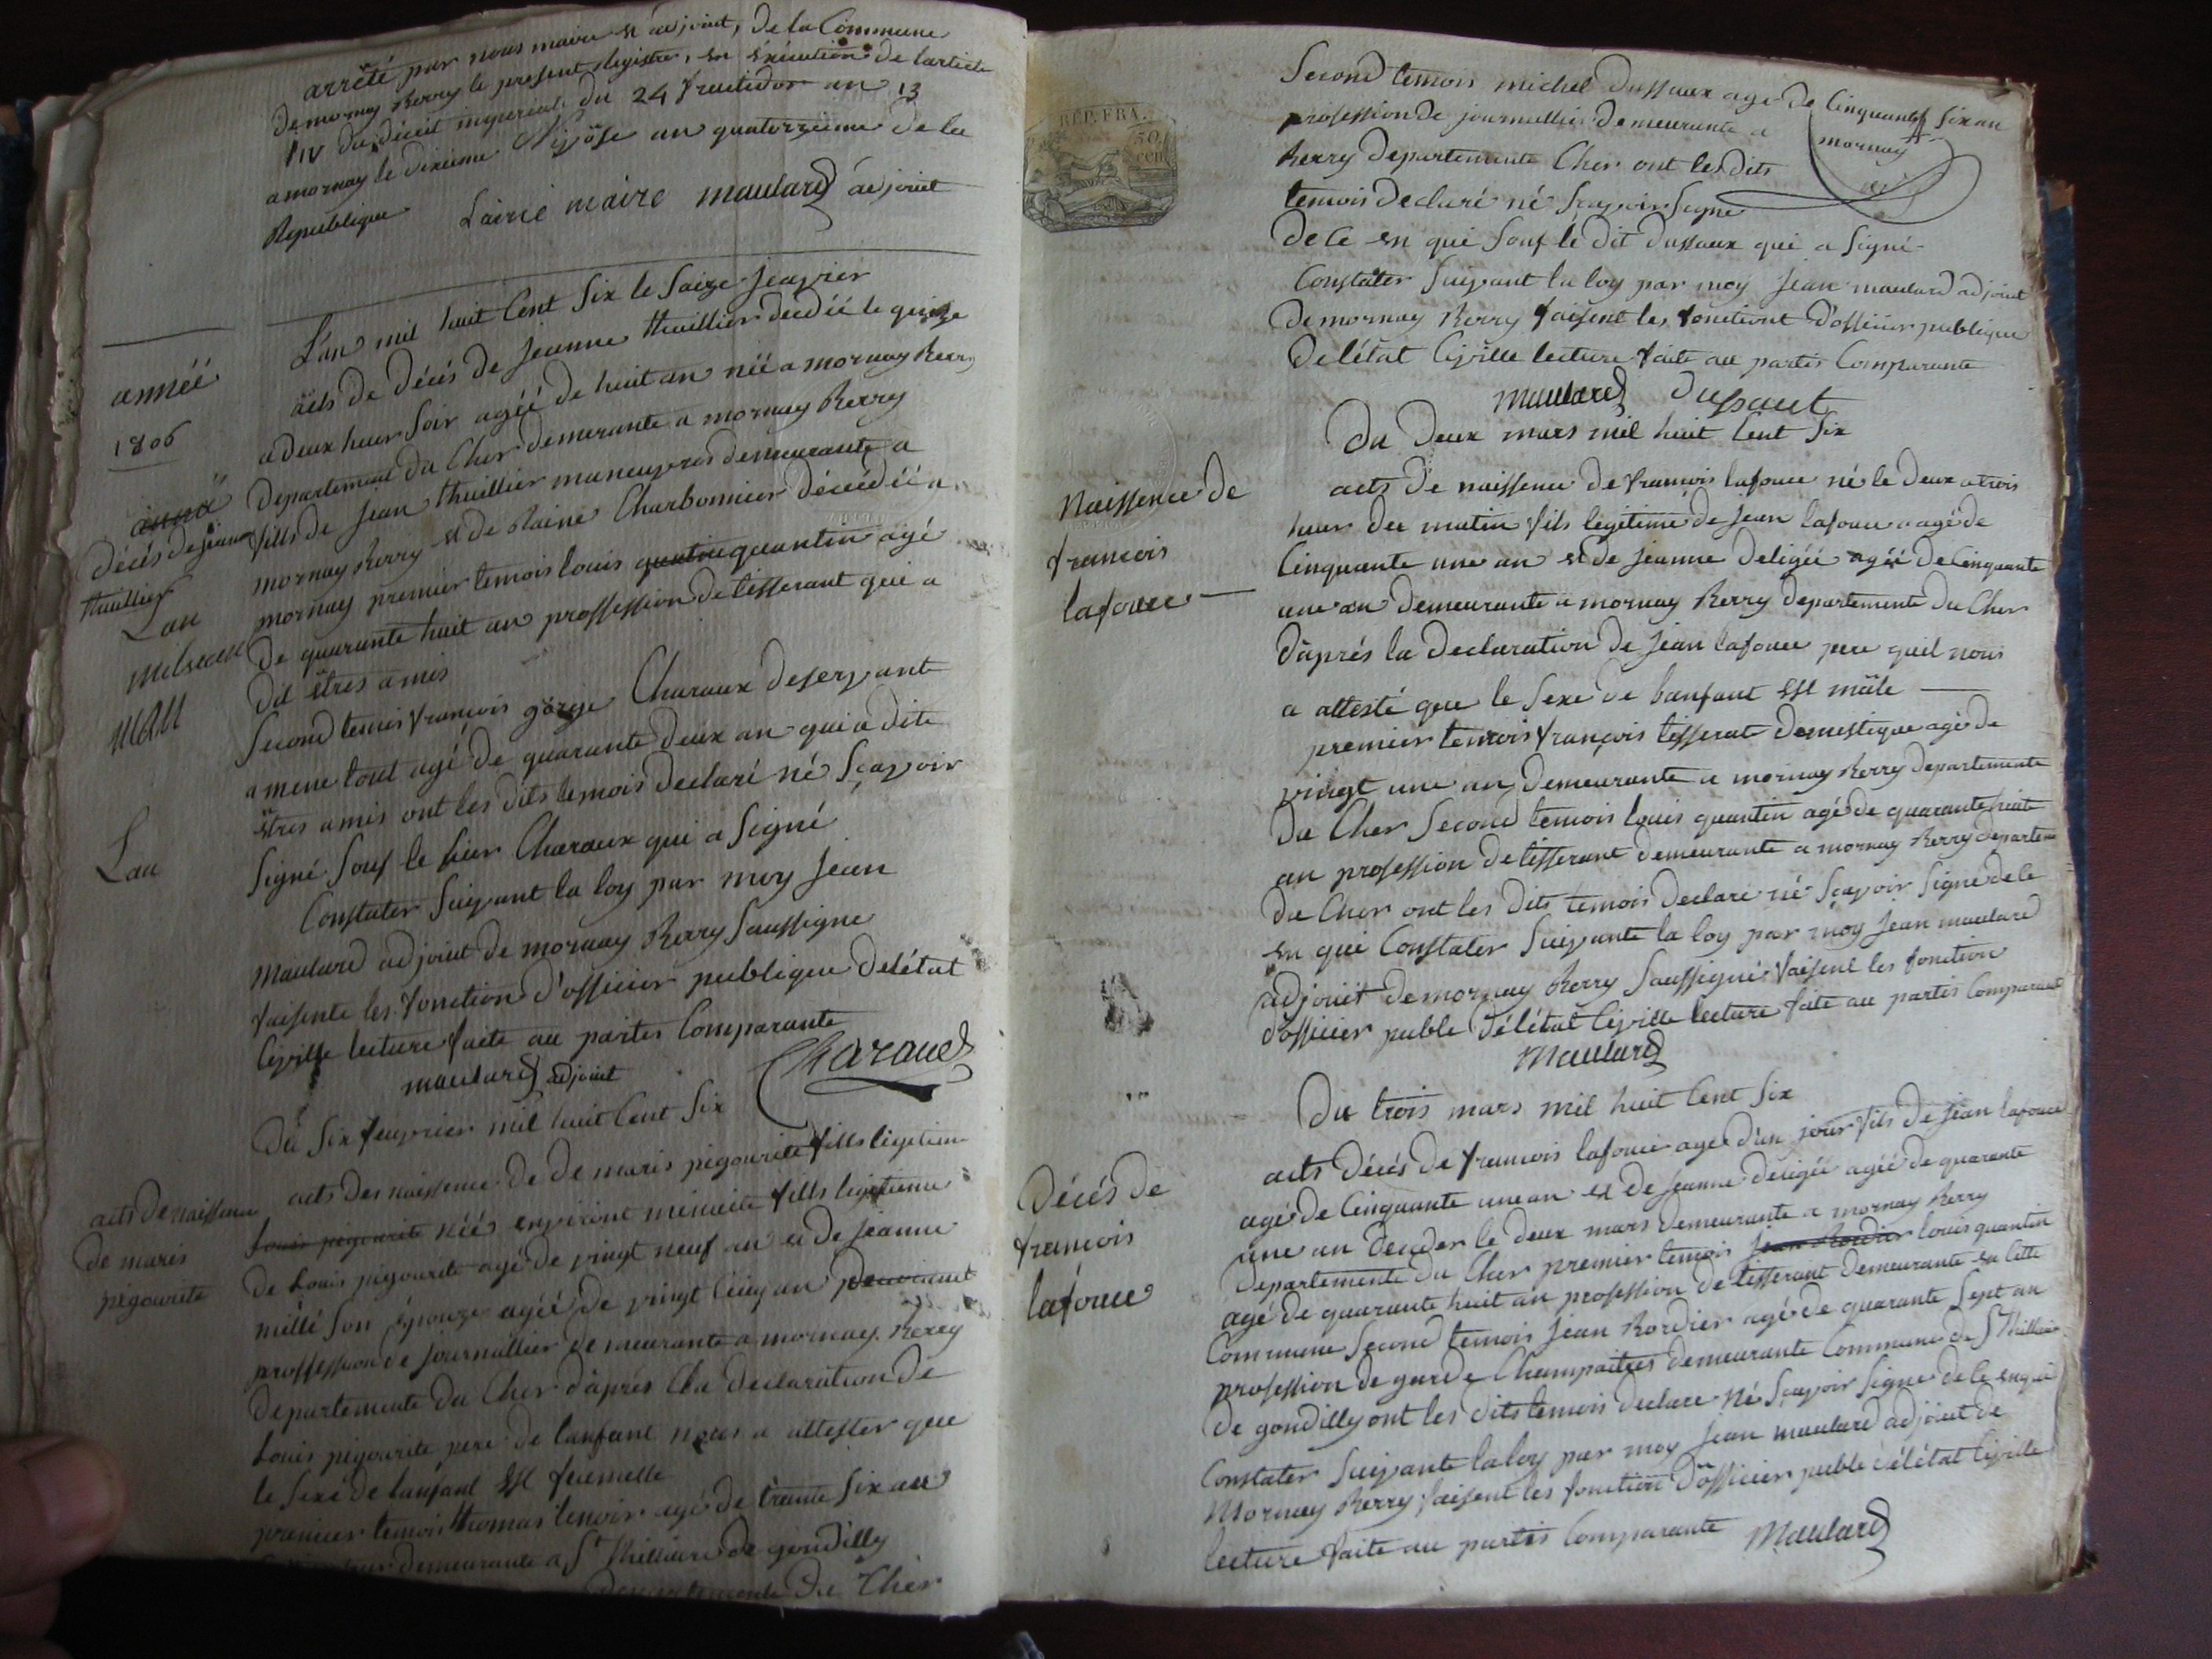 arrêté par nous maire et adjoint, de la Commune
de mornay Berry le present Registre, en éxécution de l'article
du décrit imperial du 24 fructidor an 13
a mornay le dixieme Nivôse an quatorzieme de la
Republique Lainé maire maulard adjoint
année
1806
L'an mil huit Cent Six le Saize Jeanvier
acts de Décés de Jeanne thuillier decdéé le quinze
a deux heur Soir agéé de huit an néé a mornay Berry
Departement du Cher demurante a mornay Berry
décés de jeanne
thuillier
fills de Jean thuillier maneuvres demeurante a
mornay Berry et de Raine Charbonnier décédéé a
mornay premier temois louis quantin agé
de quarante huit an proffession de tisserant qui a
dit êtres amis
Lan
mil
Second temois françois görge Charaux deservante
a menetout agé de quarante deux an qui a dite
êtres amis ont les dits temois declaré né Sçavoir
Signé Souf le sieur Charaux qui a Signé
Lan
Constater Suivant la loy par moy Jean
Maulard adjoint de mornay Berry Saussigne
faisente les fonction d'officier publique delétat
Civille lecture faite au partis Comparante
maulard adjoint Charaud
Du Six feuvrier mil huit Cent Six
acts de naissence
de maris
pigourite
acts des naissence de de maris pigourite fills legitim
Louis pigourite néé environt minuite fills legitieme
de Louis pigourite agé de vingt neuf an et de Jeanne
millé Son épouze agéé de vingt Cinq an
proffession de journallier demeurante a mornay Berry
Departemente du Cher d'aprés la declaration de
Louis pigourite pere de lanfant nous a attester que
le Sexe de lanfant est feumelle
premier temois thomas lenoir agé de trante Six an
demeurante a St hillaire de gondilly
departemente du Cher
REP. FRA.
50
cen
Second temois michel dussaux age de Cinquante Six an
profession de journallier demeurante a mornay
Berry departemente Cher ont les dits
temois declaré né Sçavoir Signe
de Ce en qui Souf lé dit dussaux qui a Signé
Constater Suivant la loy par moy Jean maulard adjoint
de mornay Berry faisent les fonctiont d'officier publique
de létat Civille lecture faite au partis Comparante
maulard Dussaut
Du Deux mars mil huit Cent Six
Naissence de
francois
lafouce
acts de naissence de francois lafouce né le deux a trois
heur du matin fils legitime de Jean lafouce agé de
Cinquante une an et de Jeanne deligéé agéé de Cinquante
une an demeurante a mornay Berry departemente du Cher
d'aprés la declaration de Jean lafouce pere quil nous
a attesté que le Sexe de lanfant est mâle
premier temois françois tisserat domestique agé de
vingt une an demeurante a mornay Berry departemente
du Cher Second temois louis quantin agé de quarante huite
an profession de tisserant demeurante a mornay Berry departem
du Cher ont les dits temois declare né Sçavoir Signe de Ce
en qui Constater Suivante la loy par moy Jean maulard
adjoint de mornay Berry Saussigné faisent les fonction
d'officier puble de létat Civille lecture faite au partis Comparant
Maulard
Du trois mars mil huit Cent Six
Décés de
francois
lafouce
acts décés de francois lafouce age d'un jour fils de Jean lafouce
agé de Cinquante une an et de Jeanne deligéé agéé de quarante
une an decder le deux mars demeurante a mornay Berry
Departemente du Cher premier temois Jean Bordier louis quantin
agé de quarante huit an profession de tisserant demeurante en Cette
Commune Second temois Jean Bordier agé de quarante Sept an
profession de garde Champaitres demeurante Commune de St hillaire
de gondilly ont les dits temois declare né Sçavoir Signe de Ce enqui
Constater Suivante la loy par moy Jean maulard adjoint de
Mornay Berry faisent les fonction d'officier puble délétat Civille
lecture faite au partis Comparante Maulard